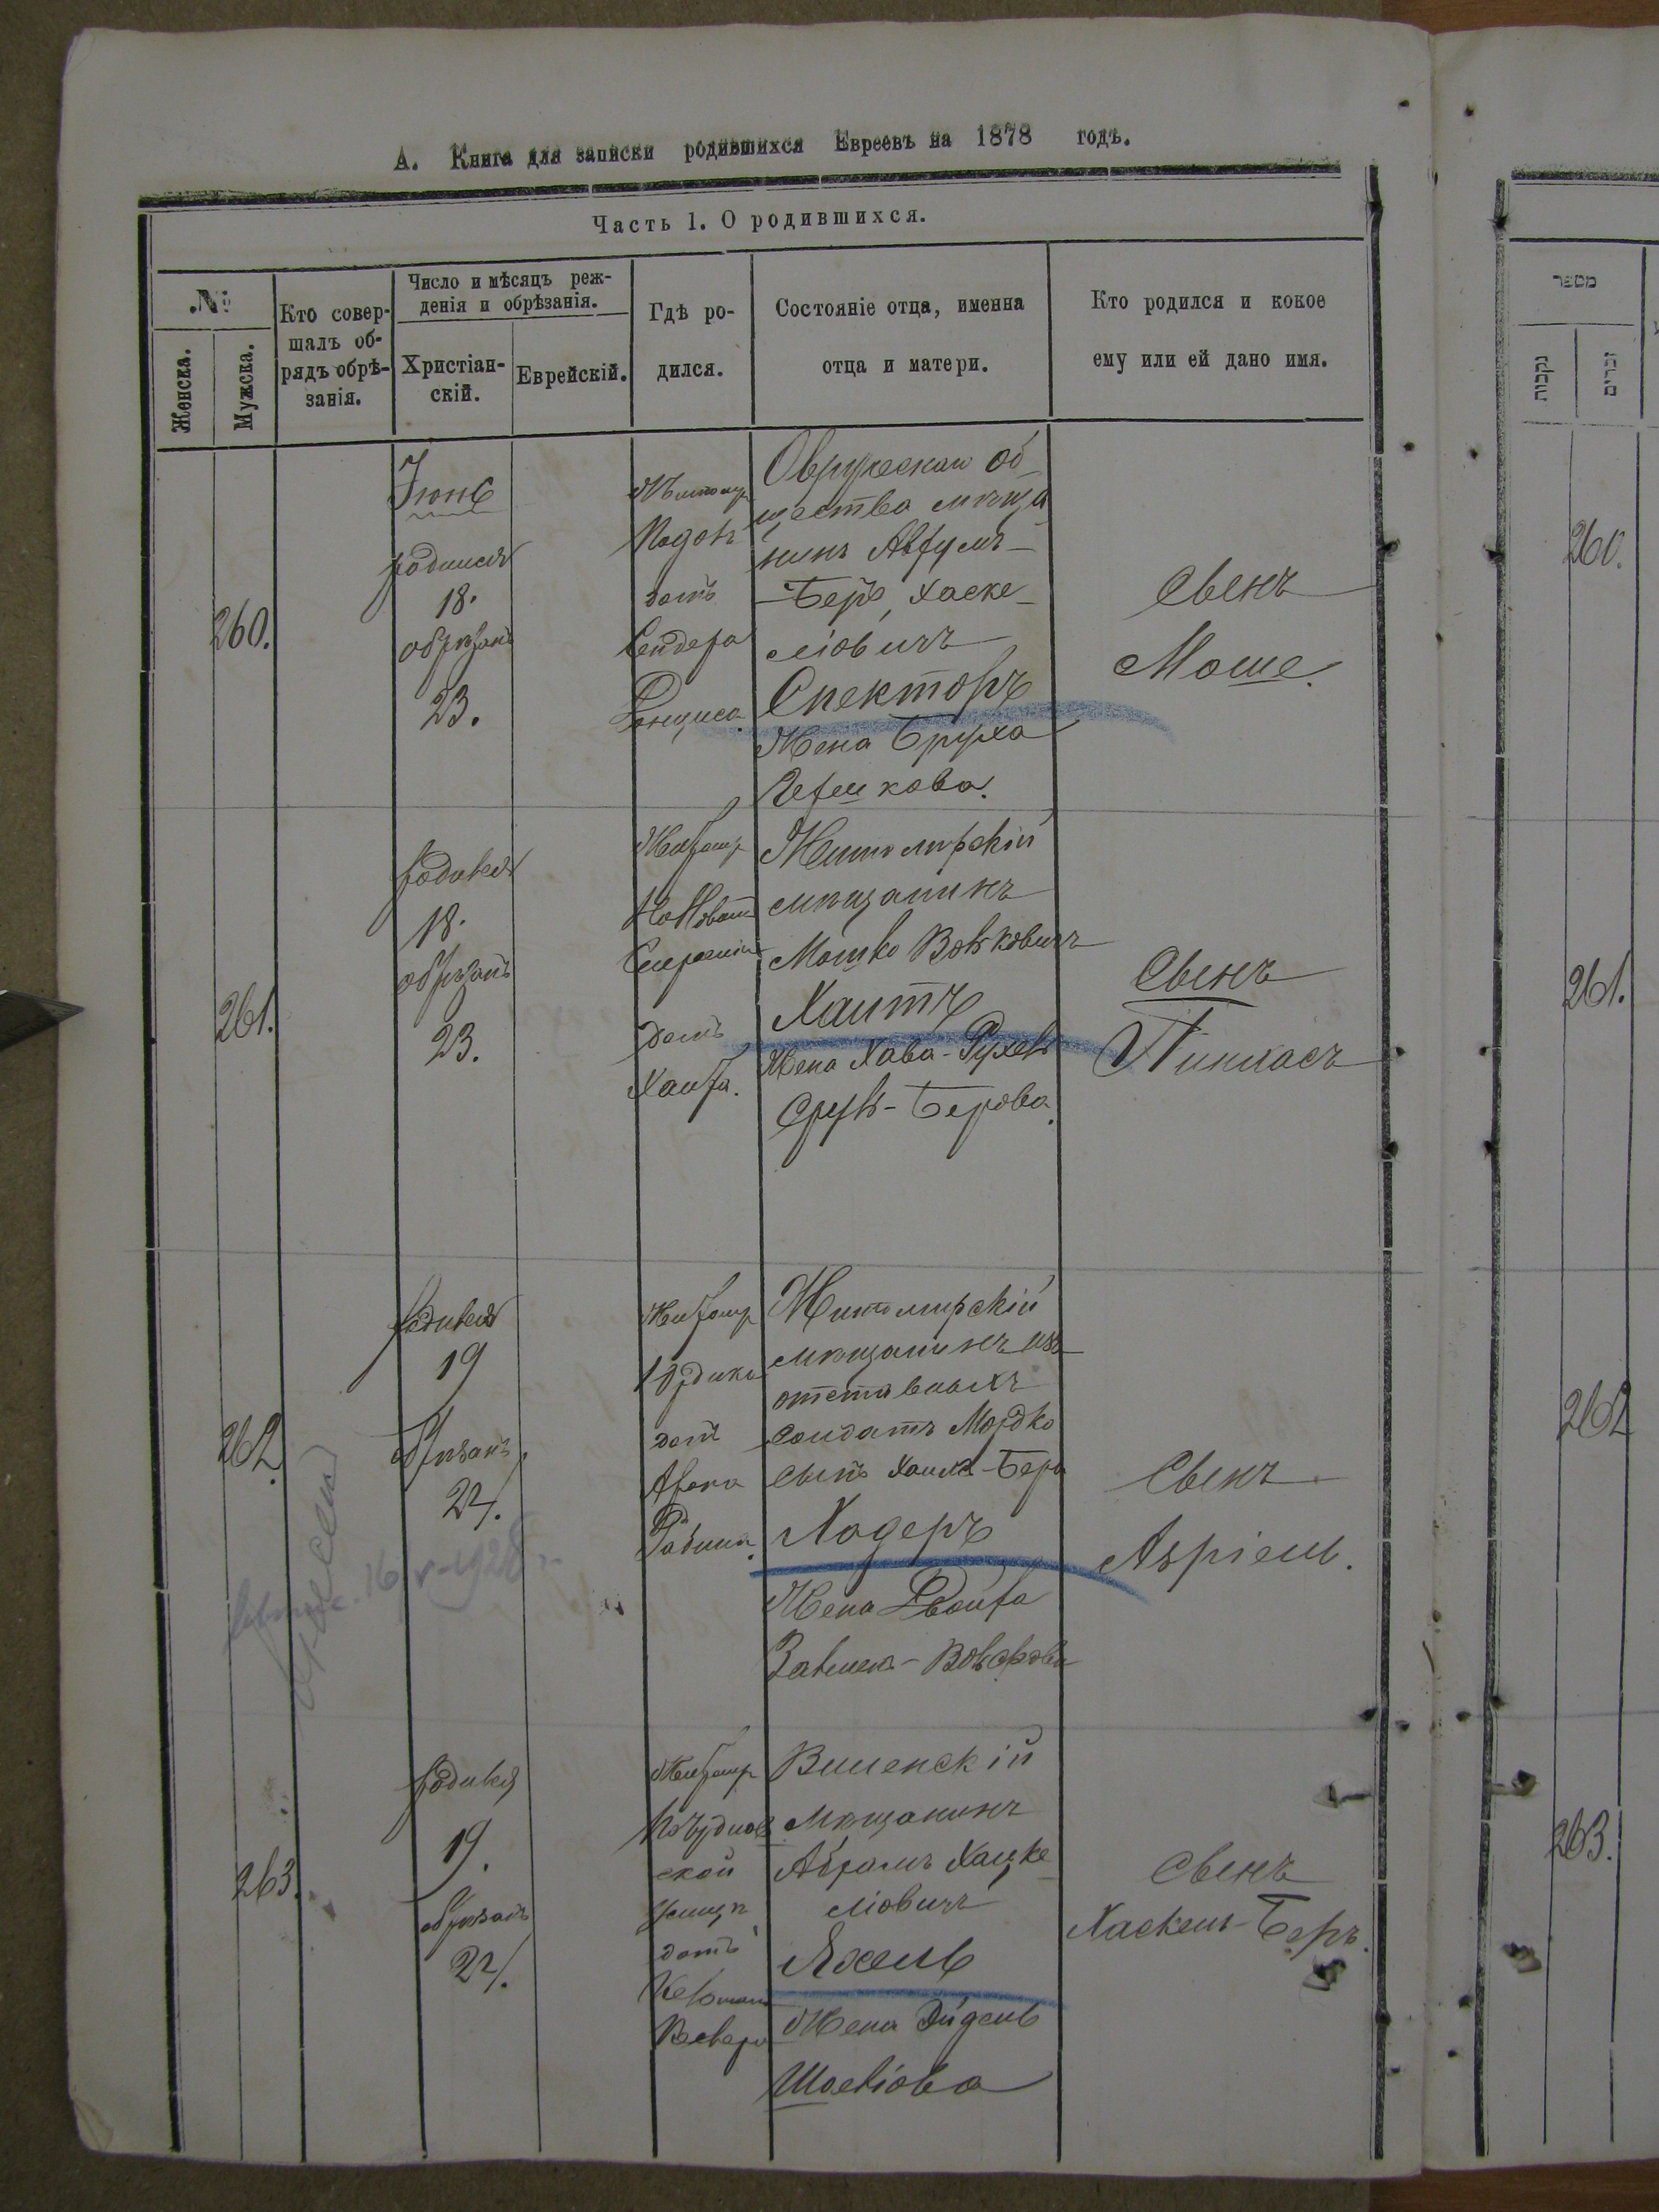 А. Книга для записки родившихся Евреевъ на 1878 годъ.
Часть 1. О родившихся.
№
Женска.
Мужска.
Кто совер-
шалъ об-
рядъ обрѣ-
занія.
Число и мѣсяцъ реж-
денія и обрѣзанія.
Христіан-
скій.
Еврейскій.
Гдѣ ро-
дился.
Состояніе отца, именна
отца и матери.
Кто родился и кокое
ему или ей дано имя.
260.
Іюнь
родился
18.
обрѣзанъ
23.
Житомир
домъ
Сендера
Овручскаго об
щества мѣща
нинъ Аврумъ-
-Беръ Хаске-
ліовичъ
Спекторъ
Жена Бруха
Гершкова.
Сынъ
Моше.
261.
родився
18.
обрѣзанъ
23.
Житомир
домъ
Житомирскій
мѣщанинъ
Мошко Вольковичъ
Хаитъ
Жена Хава-Рухель
Сруль-Берова.
Сынъ
Пинхасъ
262.
родився
19
обрѣзанъ
24.
Житомир
домъ
Житомирскій
мѣщанинъ изъ
отставныхъ
солдатъ Мордко
сынъ Хаима-Бера
Жена Двойра
Сынъ
Азріель.
16/V-1928
263.
родився
19.
обрѣзанъ
24.
Житомир
По Чуднов
ской
улицѣ
домъ
Виленскій
мѣщанинъ
Абрамъ Хацке
ліовичъ
Жена Эйдель
Сынъ
Хаскель-Беръ.
מספר
נקבות
זכרים
260.
261.
262
263.